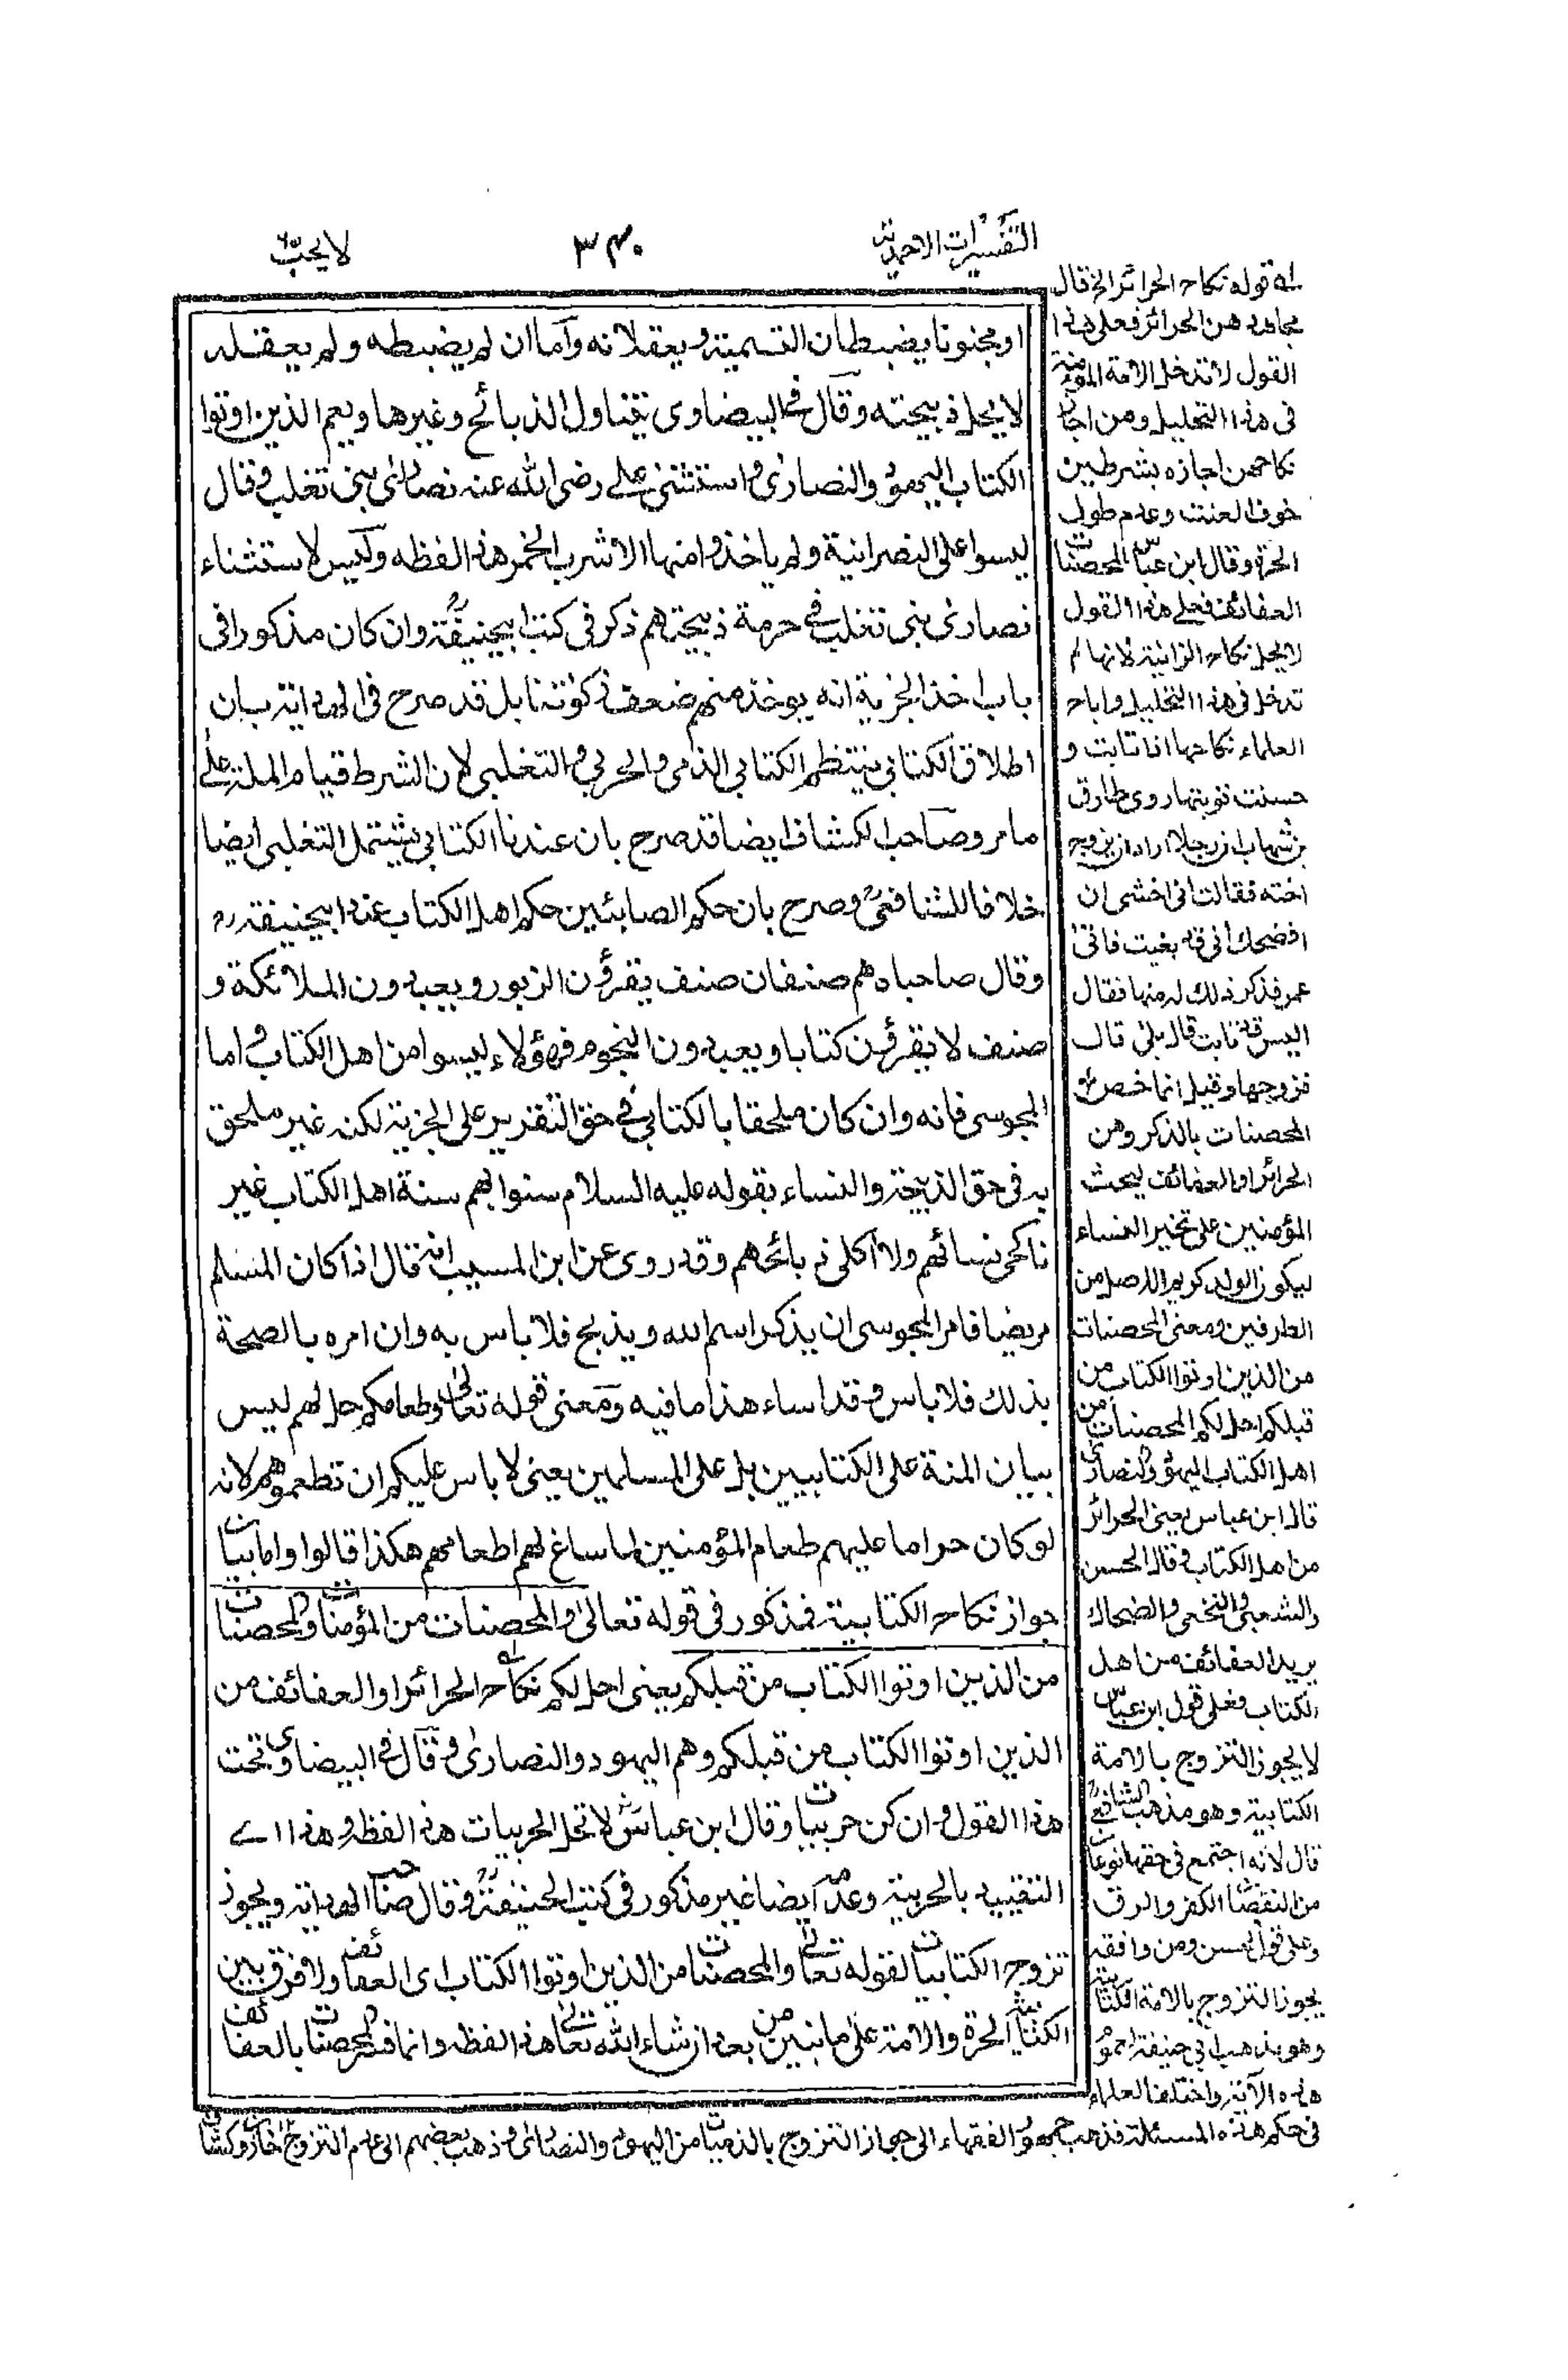 التفسيرات الاحمدية
٣٤٠
لا يحب
او مجنونا يضبطان التسمية ويعقلانه وأما ان لم يضبطه ولم يعقله
لا يحل ذبيحته وقال في البيضاوى يتناول الذبائح وغيرها ويعم الذين اوتوا
الكتاب اليهود والنصارى واستثنى على رضى الله عنه نصارى بنى تغلب وقال
ليسوا على النصرانية ولم ياخذوا منها الا شرب الخمر هذا لفظه وليس لاستثناء
نصارى بنى تغلب في حرمة ذبيحتهم ذكر فى كتب ابيحنيفة وان كان مذكورا فى
باب اخذ الجزية انه يوخذ منهم ضعف زكوتنا بل قد صرح فى الهداية بان
اطلاق الكتابي ينتظم الكتابي الذمى والحربي والتغلبى لان الشرط قيام الملة على
ما مر وصاحب الكشاف ايضا قد صرح بان عندنا الكتابي يشتمل التغلبى ايضا
خلافا للشافعى وصرح بان حكم الصابئين حكم اهل الكتاب عند ابيحنيفة رح
وقال صاحباه هم صنفان صنف يقرؤن الزبور ويعبدون الملائكة و
صنف لا يقرؤن كتابا ويعبدون النجوم فهؤلاء ليسوا من اهل الكتاب واما
المجوسى فانه وان كان ملحقا بالكتابي في حق التقرير على الجزية لكنه غير ملحق
به فى حق الذبيحة والنساء بقوله عليه السلام سنوا بهم سنة اهل الكتاب غير
ناكحى نسائهم ولا آكلى ذبائحهم وقد روى عن ابن المسيب انه قال اذا كان المسلم
مريضا فامر المجوسى ان يذكر اسم الله ويذبح فلا باس به وان امره بالصحة
بذلك فلا باس وقد اساء هذا ما فيه ومعنى قوله تعالى وطعامكم حل لهم ليس
ببيان المنة على الكتابيين بل على المسلمين يعنى لا باس عليكم ان تطعموهم لانه
لو كان حراما عليهم طعام المؤمنين لما ساغ لهم اطعامهم هكذا قالوا واما بيان
جواز نكاح الكتابية فمذكور فى قوله تعالى والمحصنات من المؤمنات والمحصنات
من الذين اوتوا الكتاب من قبلكم يعنى احل لكم نكاح الحرائر او العفائف من
الذين اوتوا الكتاب من قبلكم وهم اليهود والنصارى وقال في البيضاوى تحت
هذا القول وان كن حربيات وقال ابن عباس لا تحل الحربيات هذا لفظه وهذا اے
التقييد بالحربية وعدمه ايضا غير مذكور فى كتب الحنيفة وقال صاحب الهداية ويجوز
تزوج الكتابيات لقوله تعالى والمحصنات من الذين اوتوا الكتاب اى العفائف ولا فرق بين
الكتابية الحرة والامة على ما نبين من بعد ان شاء الله تعالى هذا لفظه وانما فسر المحصنات بالعفائف
له قوله نكاح الحرائر الخ قال
مجاهد هن الحرائر فعلى هذا
القول لا تدخل الامة المؤمنة
فى هذا التحليل ومن اجاز
نكاحهن اجازه بشرطين
خوف العنت وعدم طول
الحرة وقال ابن عباس المحصنات
العفائف فعلى هذا القول
لا يحل نكاح الزانية لانها لم
تدخل فى هذا التحليل واباح
العلماء نكاحها اذا تابت و
حسنت توبتها روى طارق
بن شهاب ان رجلا اراد ان يزوج
اخته فقالت انى اخشى ان
افضحك انى قد بغيت فاتى
عمر فذكر ذلك له منها فقال
اليس قد تابت قال بلى قال
فزوجها وقيل انما خص
المحصنات بالذكر وهن
الحرائر او العفائف ليحث
المؤمنين على تخير النساء
ليكون الولد كريم الاصل من
الطرفين ومعنى المحصنات
من الذين اوتوا الكتاب من
قبلكم احل لكم المحصنات من
اهل الكتاب اليهود والنصارى
قال ابن عباس يعنى الحرائر
من اهل الكتاب وقال الحسن
والشعبى والنخعى والضحاك
يريد العفائف من اهل
الكتاب فعلى قول ابن عباس
لا يجوز التزوج بالامة
الكتابية وهو مذهب الشافعى
قال لانه اجتمع فى حقها نوعان
من النقصان الكفر والرق
وعلى قول الحسن ومن وافقه
يجوز التزوج بالامة الكتابية
وهو مذهب ابي حنيفة لعموم
هذه الآية واختلف العلماء
فى حكم هذه المسئلة فذهب جمهور الفقهاء الى جواز التزوج بالذميات من اليهود والنصارى وذهب بعضهم الى عدم التزوج خازن وكشاف